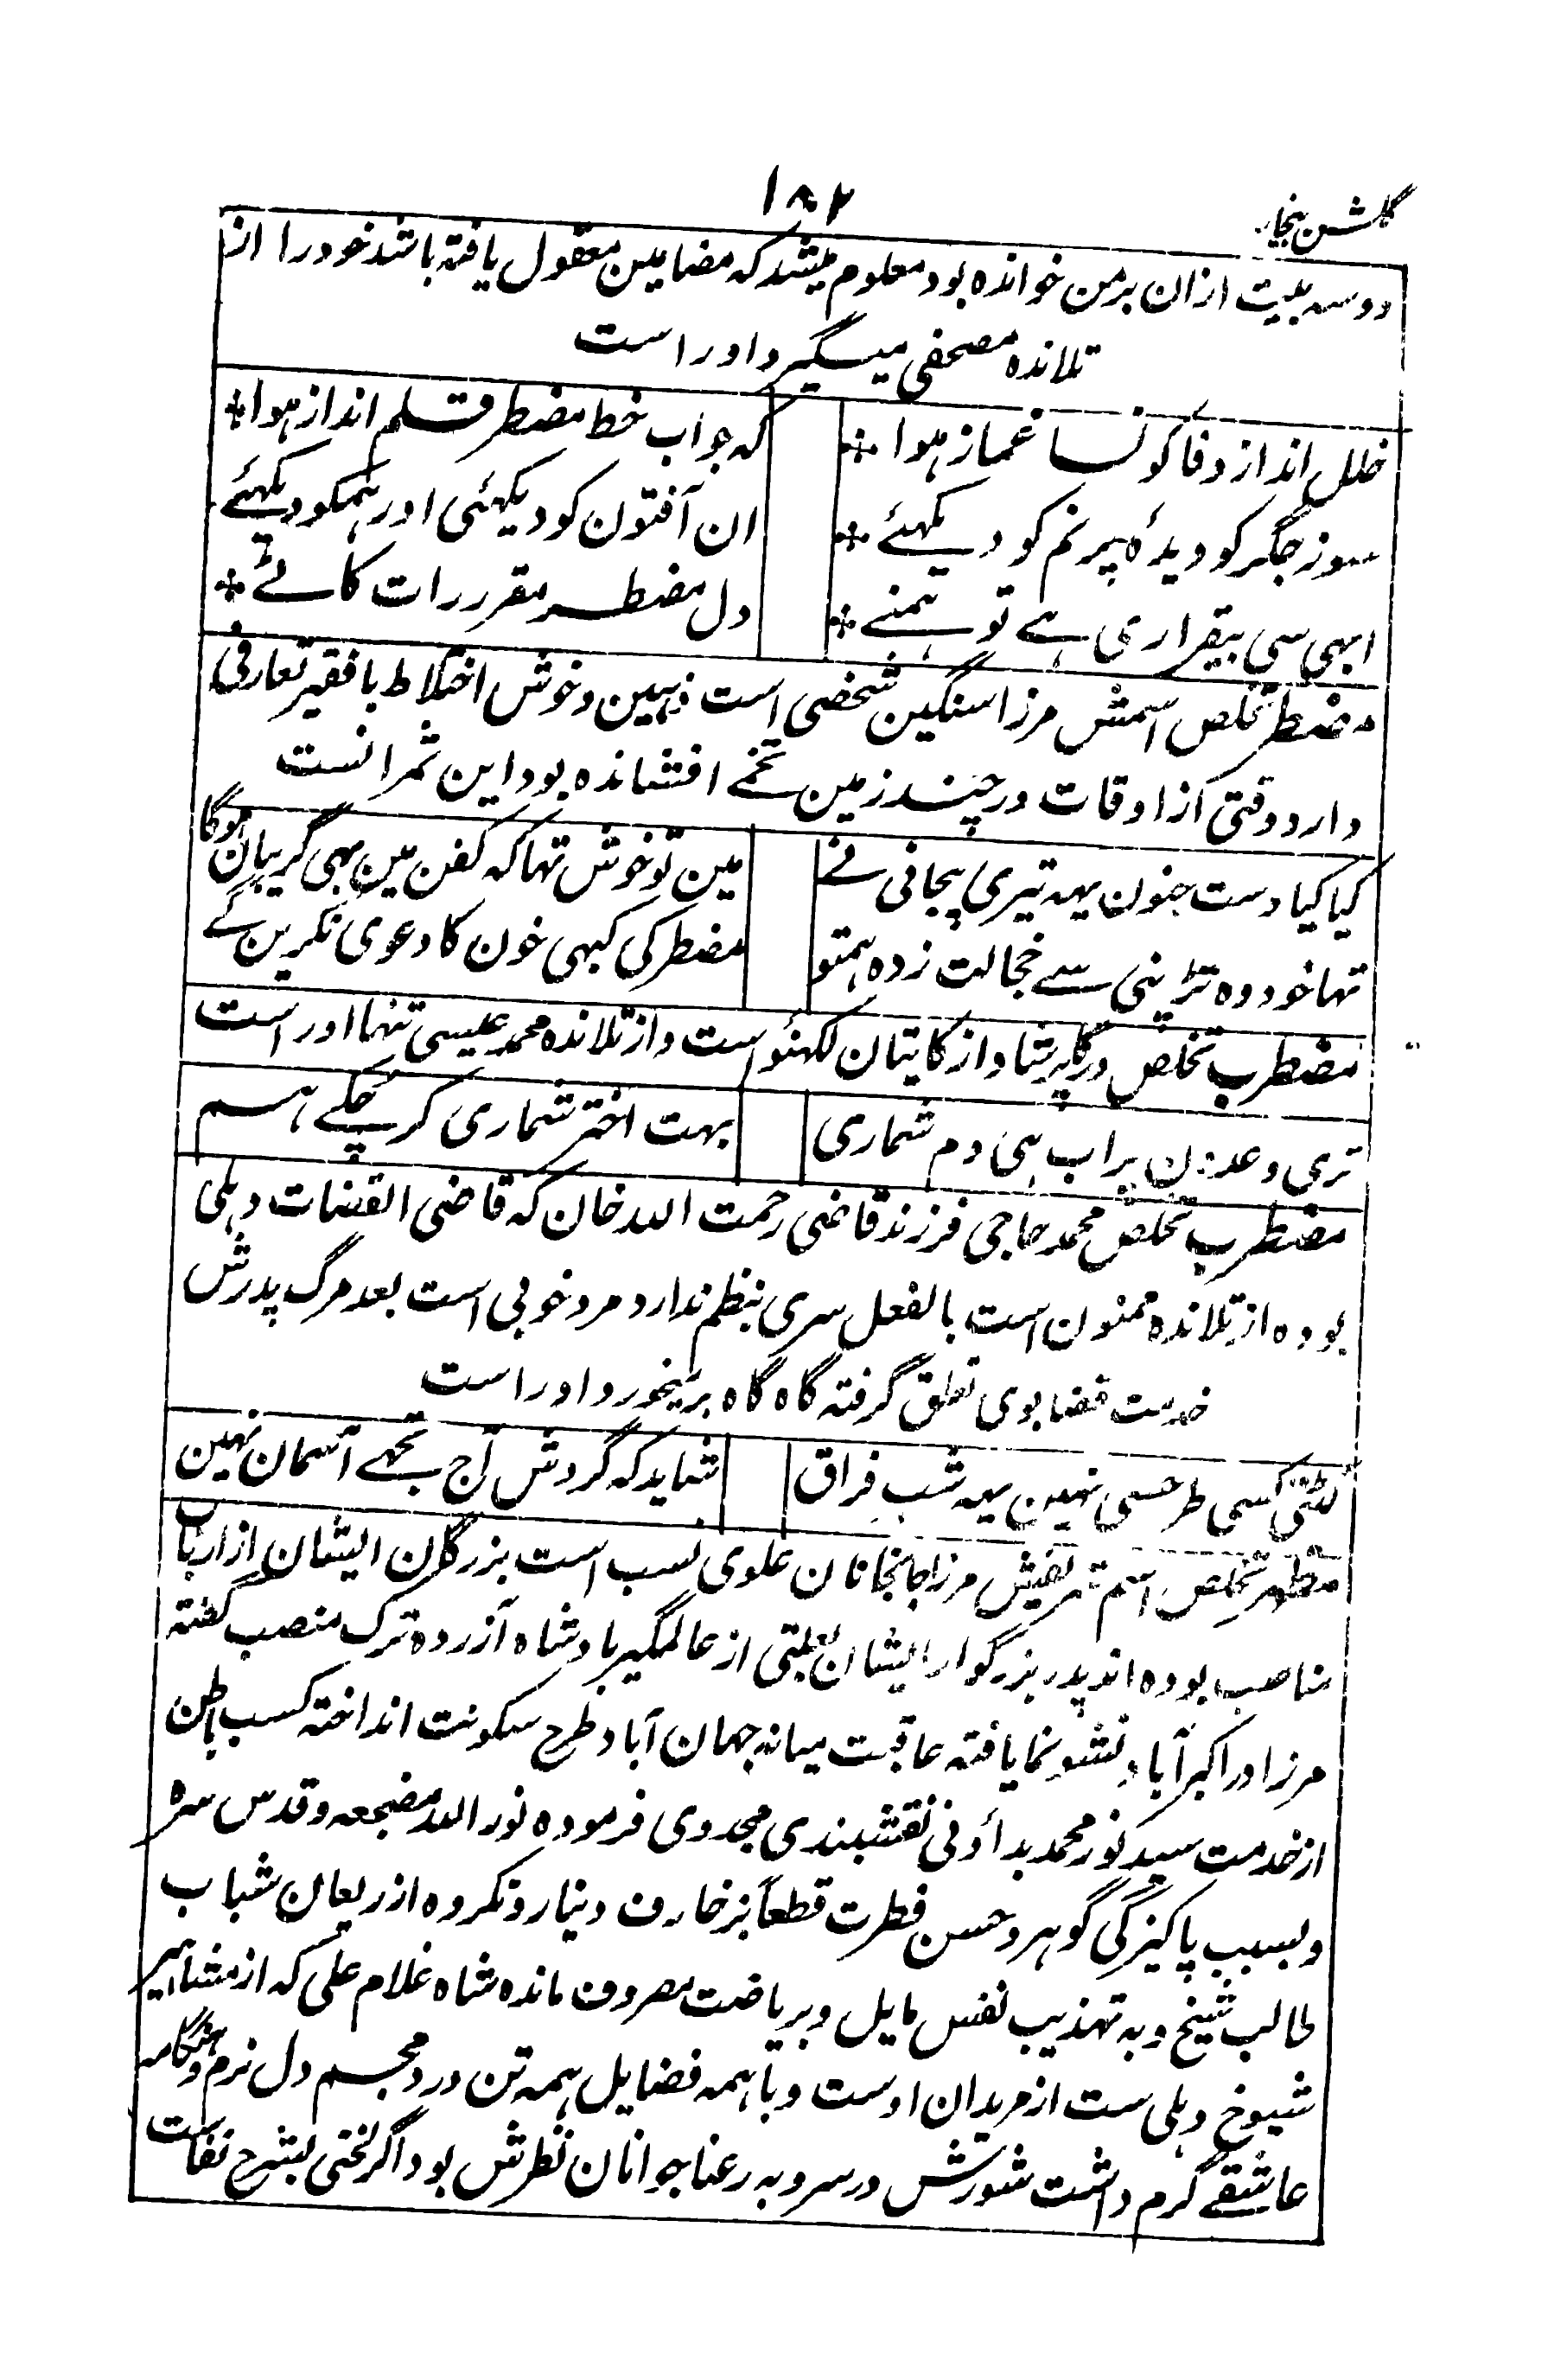 گلشن بیخار
۱۸۲
دو سه بیت ازان بر من خوانده بود معلوم میشد که مضامین معقول یافته باشد خود را از
تلامذه مصحفی میگیرد او راست
خلل انداز وفا کونسا غماز ہوا
که جواب خط مضطر قلم انداز ہوا
سوز جگر کو دیدۂ پرنم کو دیکہئے
ان آفتون کو دیکہئی اور ہمکو دیکہئے
ابہی سی بیقراری ہے تو ہمنے
دل مضطر مقرر رات کاٹے
مضطر تخلص اسمش مرزا سنگین شخصی است ذہین و خوش اختلاط با فقیر تعارفی
دارد وقتی از اوقات در چند زمین تخمے افشانده بود این ثمر انست
کیا کیا دست جنون یہہ تیری بیجافی نے
مین تو خوش تہا که کفن مین بہی گریبان ہوگا
تہا خود وه تڑپنی سے خجالت زده ہمتو
مضطر کی کبہی خون کا دعوی نکرین گے
مضطرب تخلص درگاپرشاد از کایتان لکہنؤ است و از تلامذه محمد عیسی تنہا او راست
تری وعدون پر اب ہی دم شماری
بہت اختر شماری کر چکے ہم
مضطرب تخلص محمد حاجی فرزند قاضی رحمت الله خان که قاضی القضات دہلی
بوده از تلامذه ممنون است بالفعل سری بنظم ندارد مرد خوبی است بعد مرگ پدرش
خدمت قضا بوی تعلق گرفته گاه گاه برمیخورد او راست
کٹتی کسی طرحسی نہین یہہ شب فراق
شاید که گردش آج تجہے آسمان نہین
مظہر تخلص اسم شریفش مرزا جانجانان علوی نسب است بزرگان ایشان از ارباب
مناصب بوده اند پدر بزرگوار ایشان بعلتی از عالمگیر بادشاه آزرده ترک منصب گفته
مرزا در اکبرآباد نشو نما یافته عاقبت میانه جہان آباد طرح سکونت انداخته کسب باطن
از خدمت سید نور محمد بداؤنی نقشبندی مجددی فرموده نور الله مضجعه و قدس سره
و بسبب پاکیزگی گوہر و حسن فطرت قطعاً بزخارف دنیا رو نکرده از ریعان شباب
طالب شیخ و به تہذیب نفس مایل و بریاضت مصروف مانده شاه غلام علی که از مشاہیر
شیوخ دہلی ست از مریدان اوست و باہمه فضایل ہمه تن درد مجسم دل نرم و ہنگامه
عاشقے گرم داشت شورش در سر و به رعنا جوانان نظرش بود اگر لختی بشرح نفاست